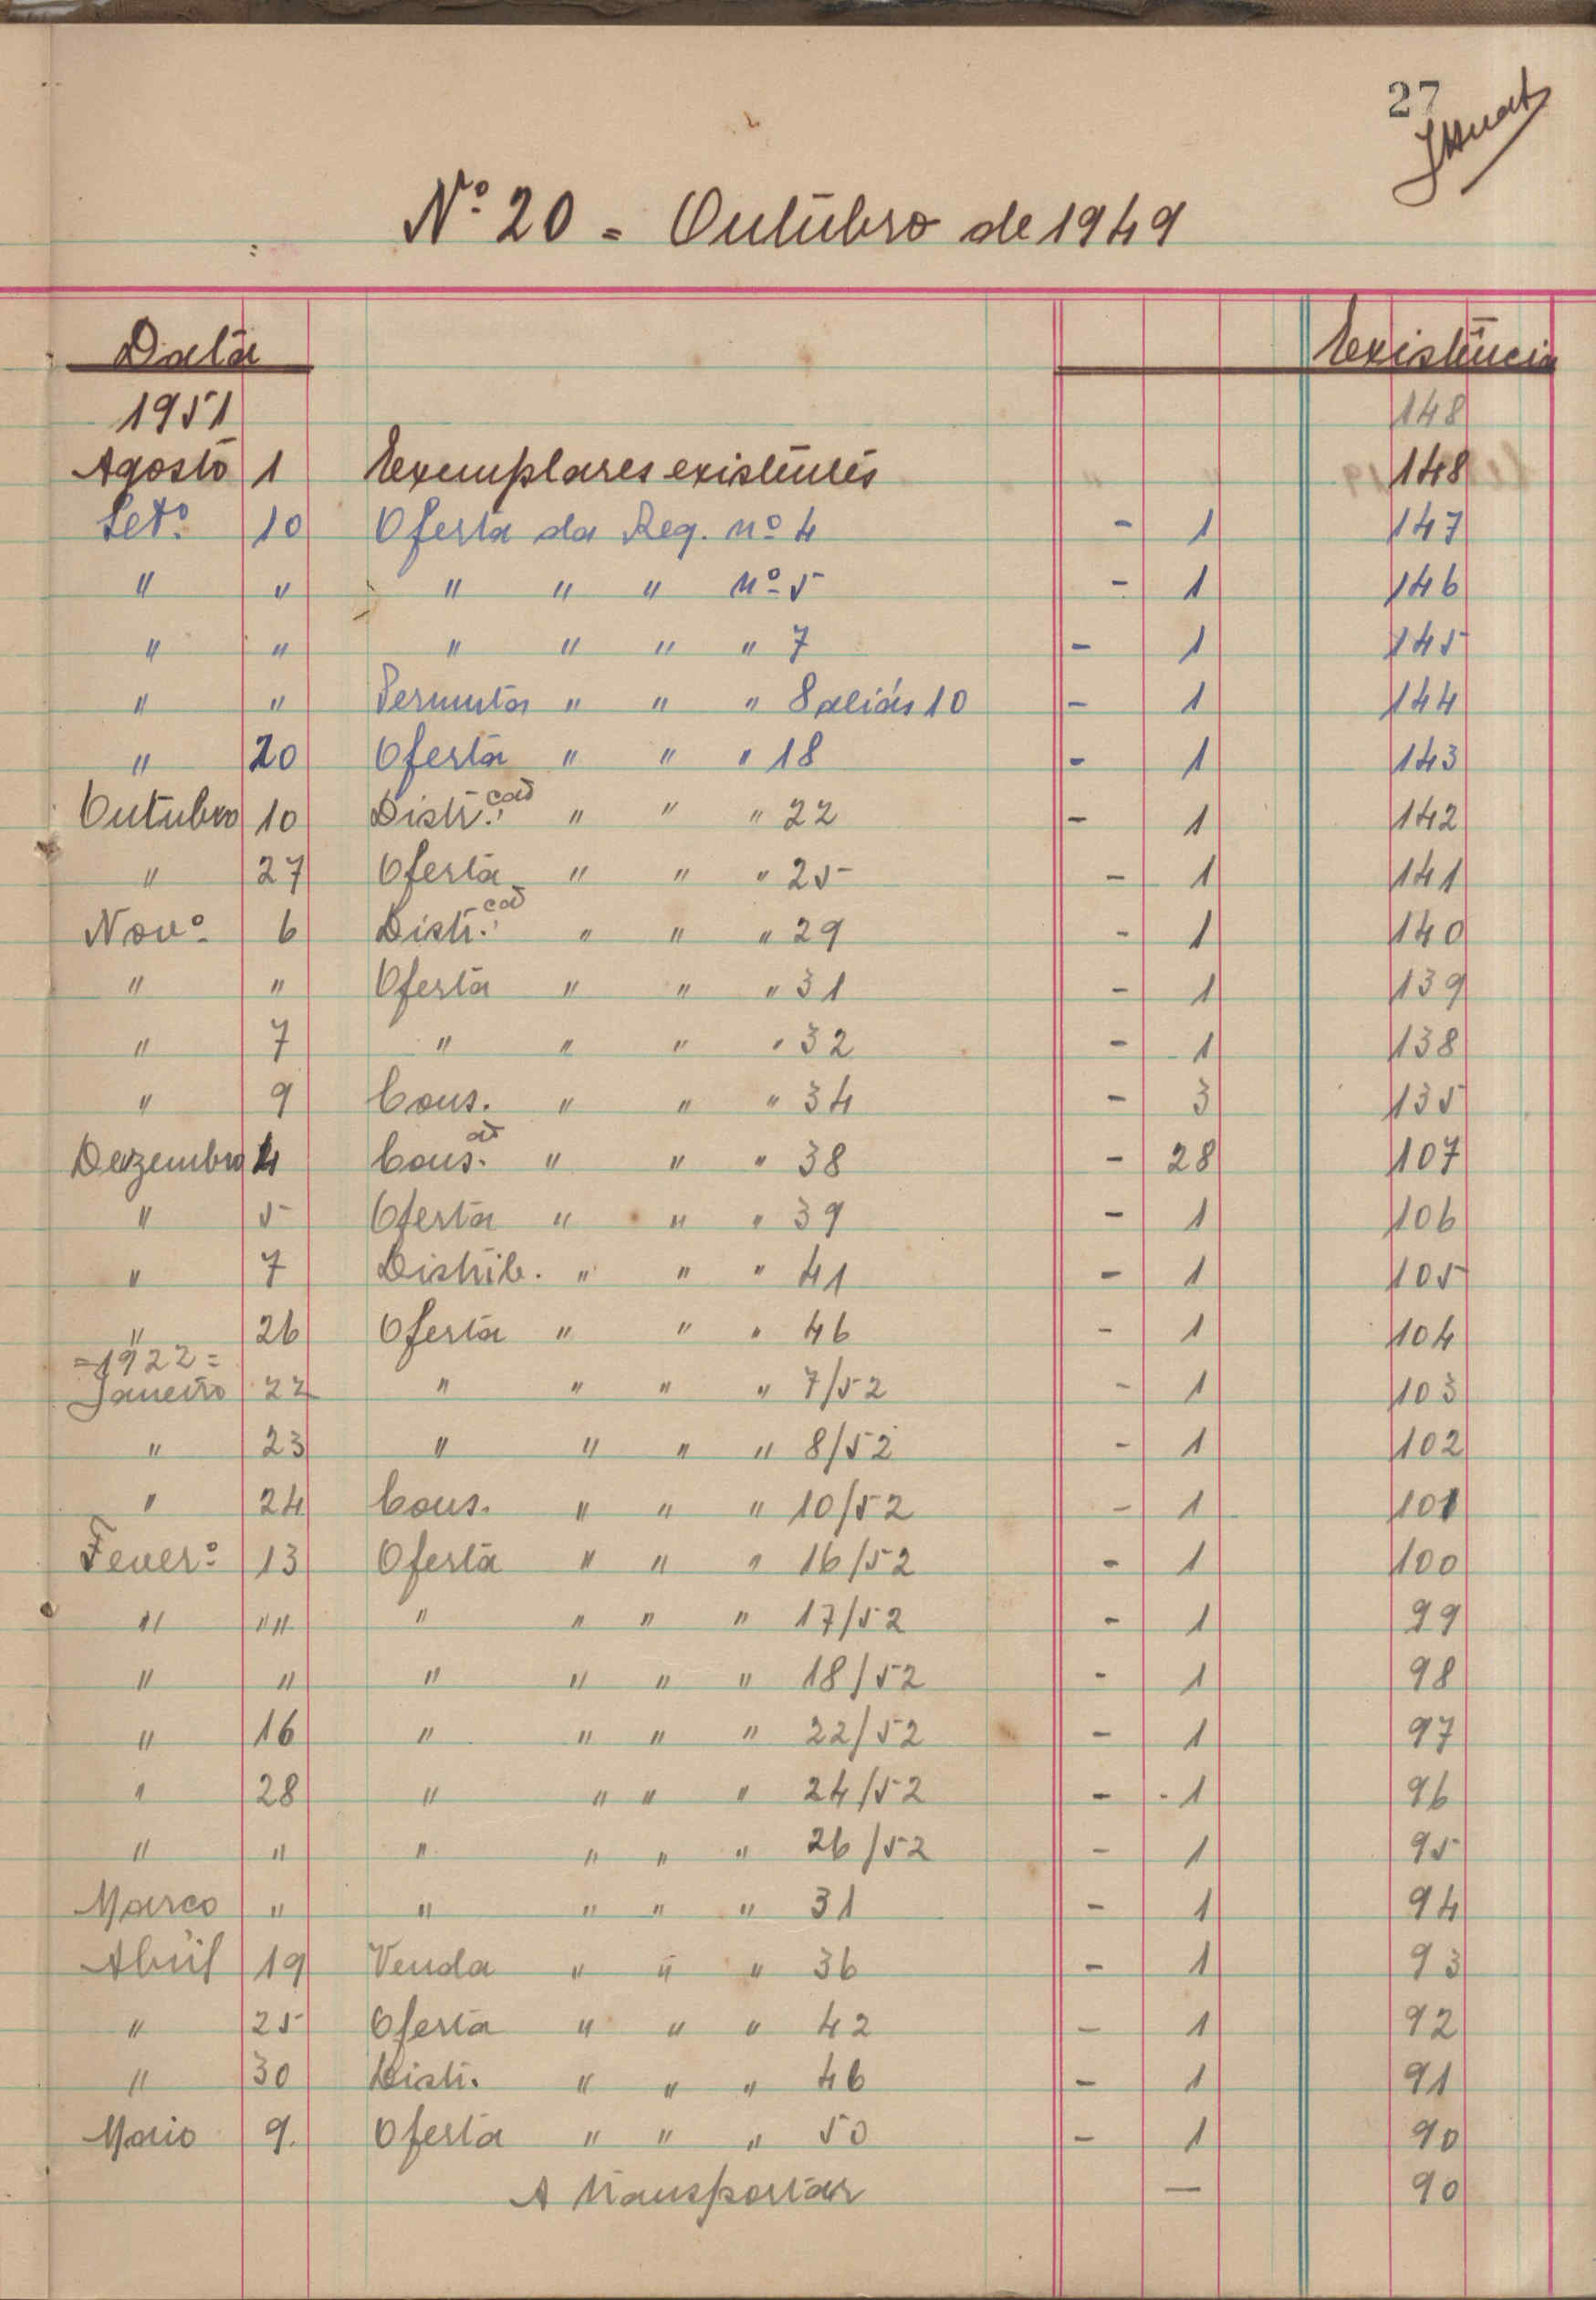 27
Nº 20 = Outubro de 1949
Data Existência
1951 148
Agosto 1 Exemplares existentes 148
Setº 10 Oferta da Req. nº 4 - 1 147
" " " " " nº 5 - 1 146
" " " " " " 7 - 1 145
" " Permuta " " " 8 aliás 10 - 1 144
" 20 Oferta " " " 18 - 1 143
Outubro 10 Distr.ção " " " 22 - 1 142
" 27 Oferta " " " 25 - 1 141
Novº 6 Distr.ção " " " 29 - 1 140
" " Oferta " " " 31 - 1 139
" 7 " " " " 32 - 1 138
" 9 Cons. " " " 34 - 3 135
Dezembro 4 Cons.ão " " " 38 - 28 107
" 5 Oferta " " " 39 - 1 106
" 7 Distrib. " " " 41 - 1 105
" 26 Oferta " " " 46 - 1 104
=1922=
Janeiro 22 " " " " 7/52 - 1 103
" 23 " " " " 8/52 - 1 102
" 24 Cons. " " " 10/52 - 1 101
Feverº 13 Oferta " " " 16/52 - 1 100
" "" " " " " 17/52 - 1 99
" " " " " " 18/52 - 1 98
" 16 " " " " 22/52 - 1 97
" 28 " " " " 24/52 - 1 96
" " " " " " 26/52 - 1 95
Março " " " " " 31 - 1 94
Abril 19 Venda " " " 36 - 1 93
" 25 Oferta " " " 42 - 1 92
" 30 Distr. " " " 46 - 1 91
Maio 9. Oferta " " " 50 - 1 90
A transportar — 90